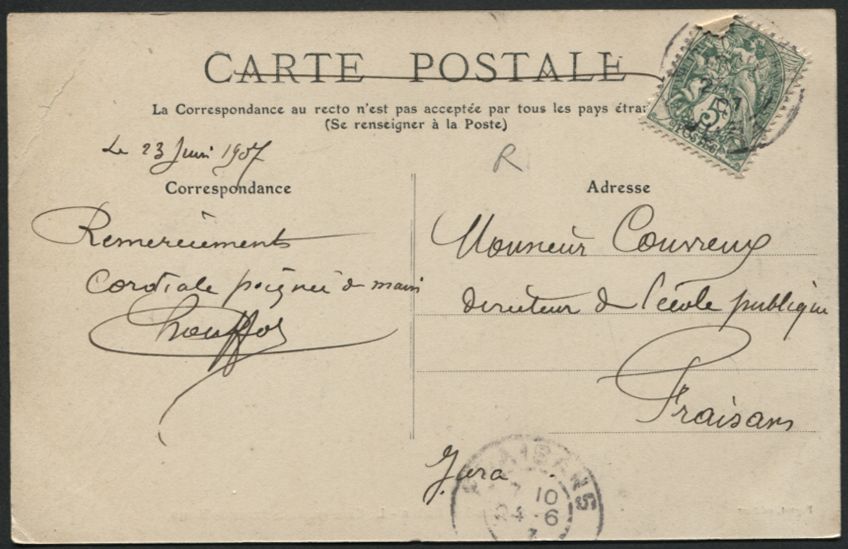 CARTE POSTALE
La Correspondance au recto n'est pas acceptée par tous les pays étran
(Se renseigner à la Poste)
Le 23 Juin 1907
R
Correspondance
Adresse
Remerciements
Cordiale poignée de main
Monsieur Couvreux
directeur de l'école publique
Fraisans
Jura
5
POSTES
FRAISANS
7 10
24 6